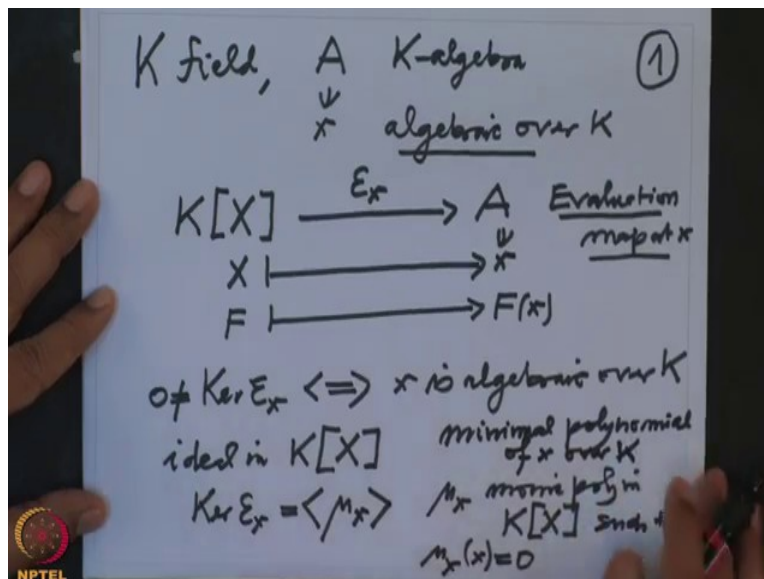 K field, A K-algebra ①
∪
x algebraic over K
K[X] —εx→ A Evaluation
∪
X ↦ x map at x
F ↦ F(x)
0 ≠ Ker εx <=> x is algebraic over K
ideal in K[X] minimal polynomial
of x over K
Ker εx = <μx> μx monic poly in
K[X] such
μx(x)=0
NPTEL